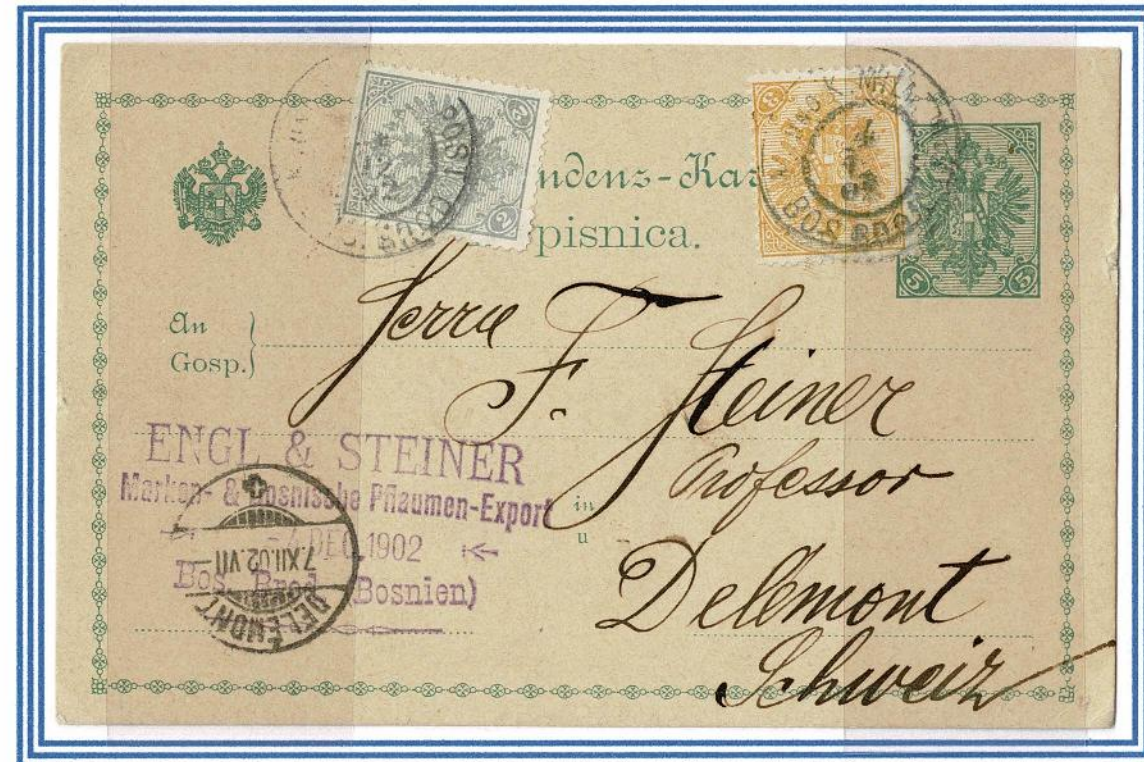 ndenz-Kar
pisnica.
2 2
3
5 5
BOS BROD
An
Gosp.
Herrn
F. Steiner
Professor
in
u
Delémont
Schweiz
ENGL & STEINER
Marken- & Bosnische Pflaumen-Export
-4 DEC 1902
Bos. Brod (Bosnien)
7.XII.02.VII
DELÉMONT